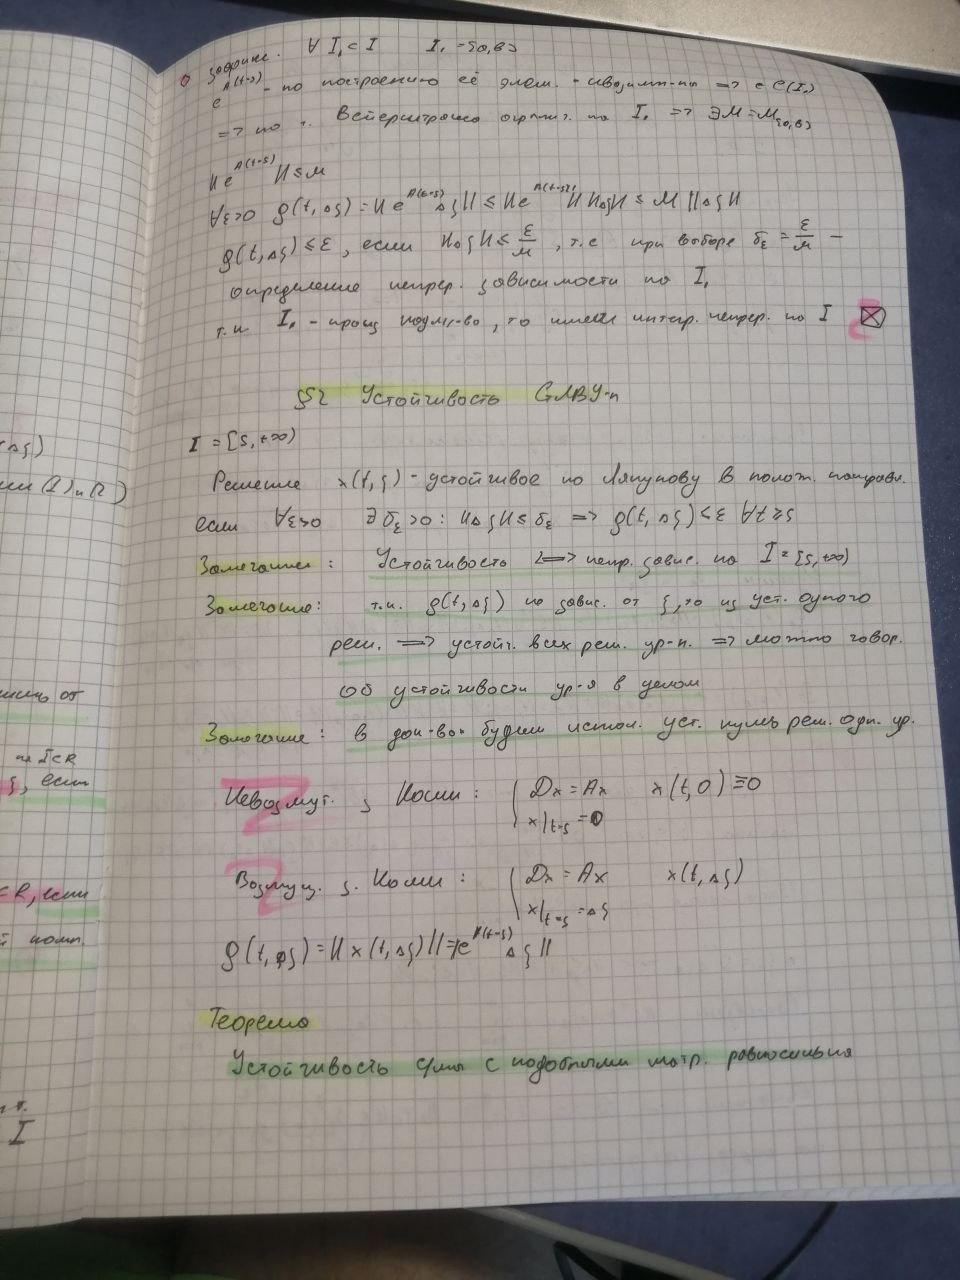 зафикс. ∀ I₁ ⊂ I I₁ = [a, b]
e^{A(t-s)} - по построению её элем. - квазимн-ны => ∈ C(I₁)
=> по т. Вейерштрасса огранич. на I₁ => ∃M = M_{[a,b]}
‖e^{A(t-s)}‖ ≤ M
∀ε>0 ρ(t, Δξ) = ‖e^{A(t-s)} Δξ‖ ≤ ‖e^{A(t-s)}‖ ‖Δξ‖ ≤ M ‖Δξ‖
ρ(t, Δξ) ≤ ε, если ‖Δξ‖ ≤ ε/M, т.е при выборе δ_ε = ε/M -
определение непрер. зависимости по I₁
т.к. I₁ - произ подмн-во, то имеем интегр. непрер. по I
§2 Устойчивость СЛВУ-п
I = [s, +∞)
Решение x(t, ξ) - устойчивое по Ляпунову в полож. направл.
если ∀ε>0 ∃ δ_ε >0: ‖Δξ‖ ≤ δ_ε => ρ(t, Δξ) < ε ∀t ≥ s
Замечание: Устойчивость <=> непр. завис. на I = [s, +∞)
Замечание: т.к. ρ(t, Δξ) не завис. от ξ, то из уст. одного
реш. => устойч. всех реш. ур-п. => можно говор.
об устойчивости ур-я в целом
Замечание: в док-вах будем испол. уст. нуль реш. одн. ур.
Невозмут. з Коши: { Dx = Ax x(t, 0) ≡ 0
x|t=s = 0
Возмущ. з. Коши: { Dx = Ax x(t, Δξ)
x|t=s = Δξ
ρ(t, Δξ) = ‖x(t, Δξ)‖ = ‖e^{A(t-s)} Δξ‖
Теорема
Устойчивость с подобными матр. равносильна
ξ, если
⊂ R, если
I